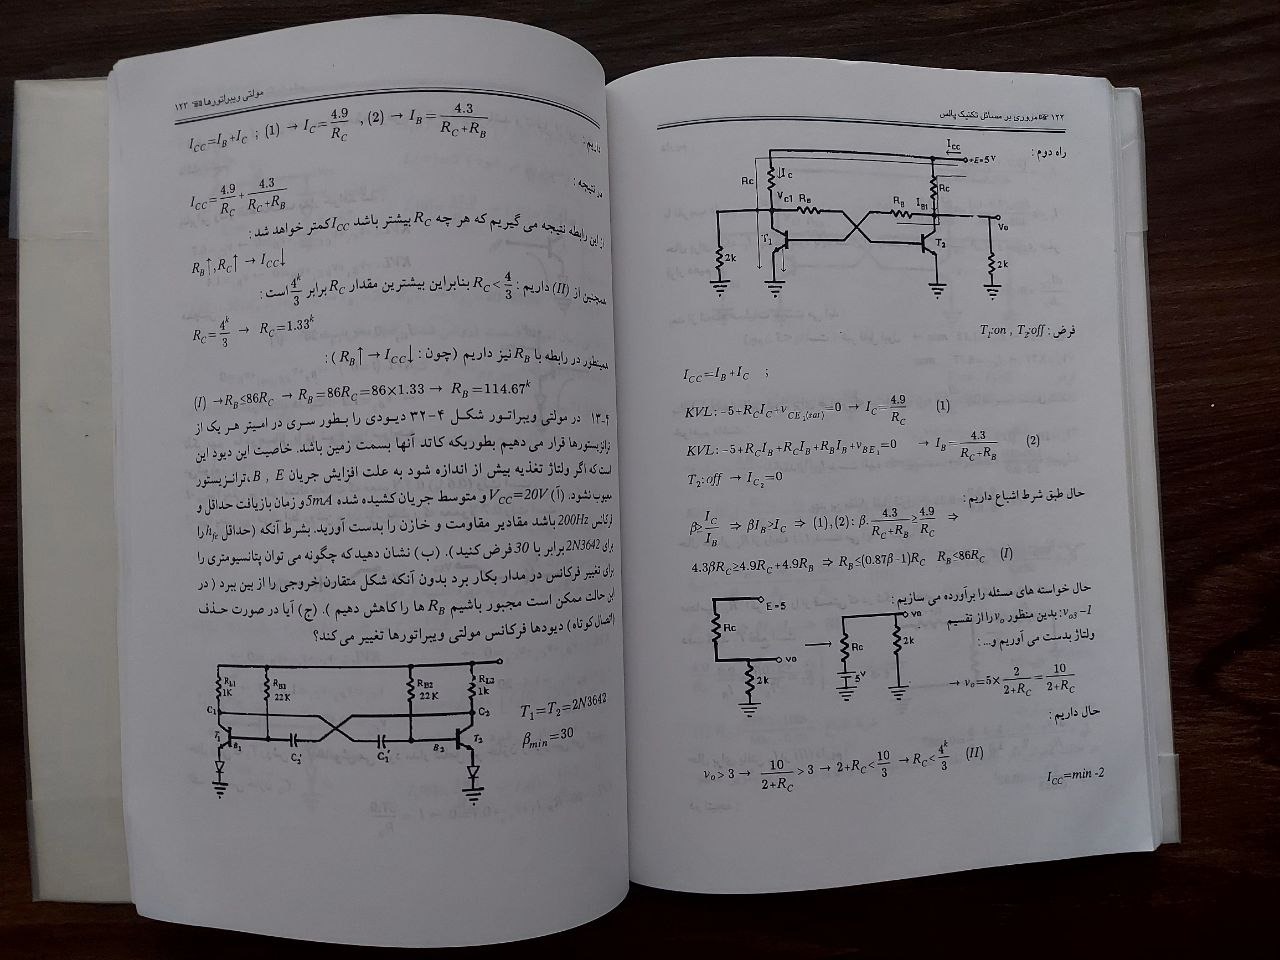 ۱۲۲ مروری بر مسائل تکنیک پالس
راه دوم :
Icc
+E=5V
Rc
Ic
Rc
Vc1
RB
RB
IB1
Vo
T1
T2
2k
2k
فرض : T1:on , T2:off
ICC=IB+IC ;
KVL: -5+RCIC+vCE1(sat)=0 → IC=4.9/RC (1)
KVL: -5+RCIB+RCIB+RBIB+vBE1=0 → IB=4.3/(RC+RB) (2)
T2:off → IC2=0
حال طبق شرط اشباع داریم :
β≥IC/IB ⇒ βIB>IC ⇒ (1),(2): β.4.3/(RC+RB)≥4.9/RC ⇒
4.3βRC≥4.9RC+4.9RB ⇒ RB≤(0.87β-1)RC RB≤86RC (I)
حال خواسته های مسئله را برآورده می سازیم :
vo3 -1: بدین منظور vo را از تقسیم
ولتاژ بدست می آوریم و... :
E=5
Rc
vo
2k
→
Rc
5V
vo
2k
→ vo=5×2/(2+RC)=10/(2+RC)
حال داریم :
vo>3 → 10/(2+RC)>3 → 2+RC<10/3 → RC<4k/3 (II)
ICC=min -2
مولتی ویبراتورها ۱۲۳
داریم : ICC=IB+IC ; (1) → IC=4.9/RC , (2) → IB=4.3/(RC+RB)
در نتیجه :
ICC=4.9/RC+4.3/(RC+RB)
از این رابطه نتیجه می گیریم که هر چه RC بیشتر باشد ICC کمتر خواهد شد :
RB↑,RC↑ → ICC↓
همچنین از (II) داریم : RC<4/3 بنابراین بیشترین مقدار RC برابر 4k/3 است :
RC=4k/3 → RC=1.33k
همینطور در رابطه با RB نیز داریم (چون : RB↑ → ICC↓) :
(I) → RB≤86RC → RB=86RC=86×1.33 → RB=114.67k
۴-۱۳ در مولتی ویبراتور شکل ۴-۳۲ دیودی را بطور سری در امیتر هر یک از
ترانزیستورها قرار می دهیم بطوریکه کاتد آنها بسمت زمین باشد. خاصیت این دیود این
است که اگر ولتاژ تغذیه بیش از اندازه شود به علت افزایش جریان B , E، ترانزیستور
معیوب نشود. (آ) VCC=20V و متوسط جریان کشیده شده 5mA و زمان بازیافت حداقل و
فرکانس 200Hz باشد مقادیر مقاومت و خازن را بدست آورید. بشرط آنکه (حداقل hfe را
برای 2N3642 برابر با 30 فرض کنید). (ب) نشان دهید که چگونه می توان پتانسیومتری را
برای تغییر فرکانس در مدار بکار برد بدون آنکه شکل متقارن خروجی را از بین ببرد ( در
این حالت ممکن است مجبور باشیم RB ها را کاهش دهیم ). (ج) آیا در صورت حذف
(اتصال کوتاه) دیودها فرکانس مولتی ویبراتورها تغییر می کند؟
RL1
1K
RB1
22K
RB2
22K
RL2
1k
C1
C2
T1
B1
C2'
C1'
B2
T2
T1=T2=2N3642
βmin=30